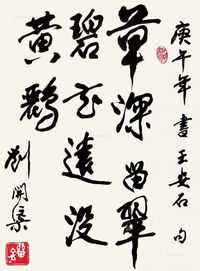 庚午年書王安石句
草深留翠
碧花遠沒
黃鸝
劉開渠